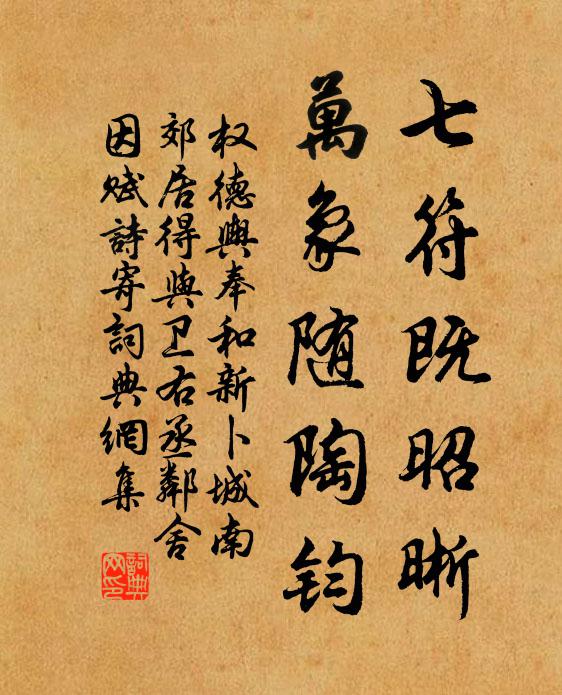 七符既昭晰
萬象随陶钧
权德輿奉和新卜城南
郊居得與卫右丞鄰舍
因赋詩寄詞典網集
詞典网印